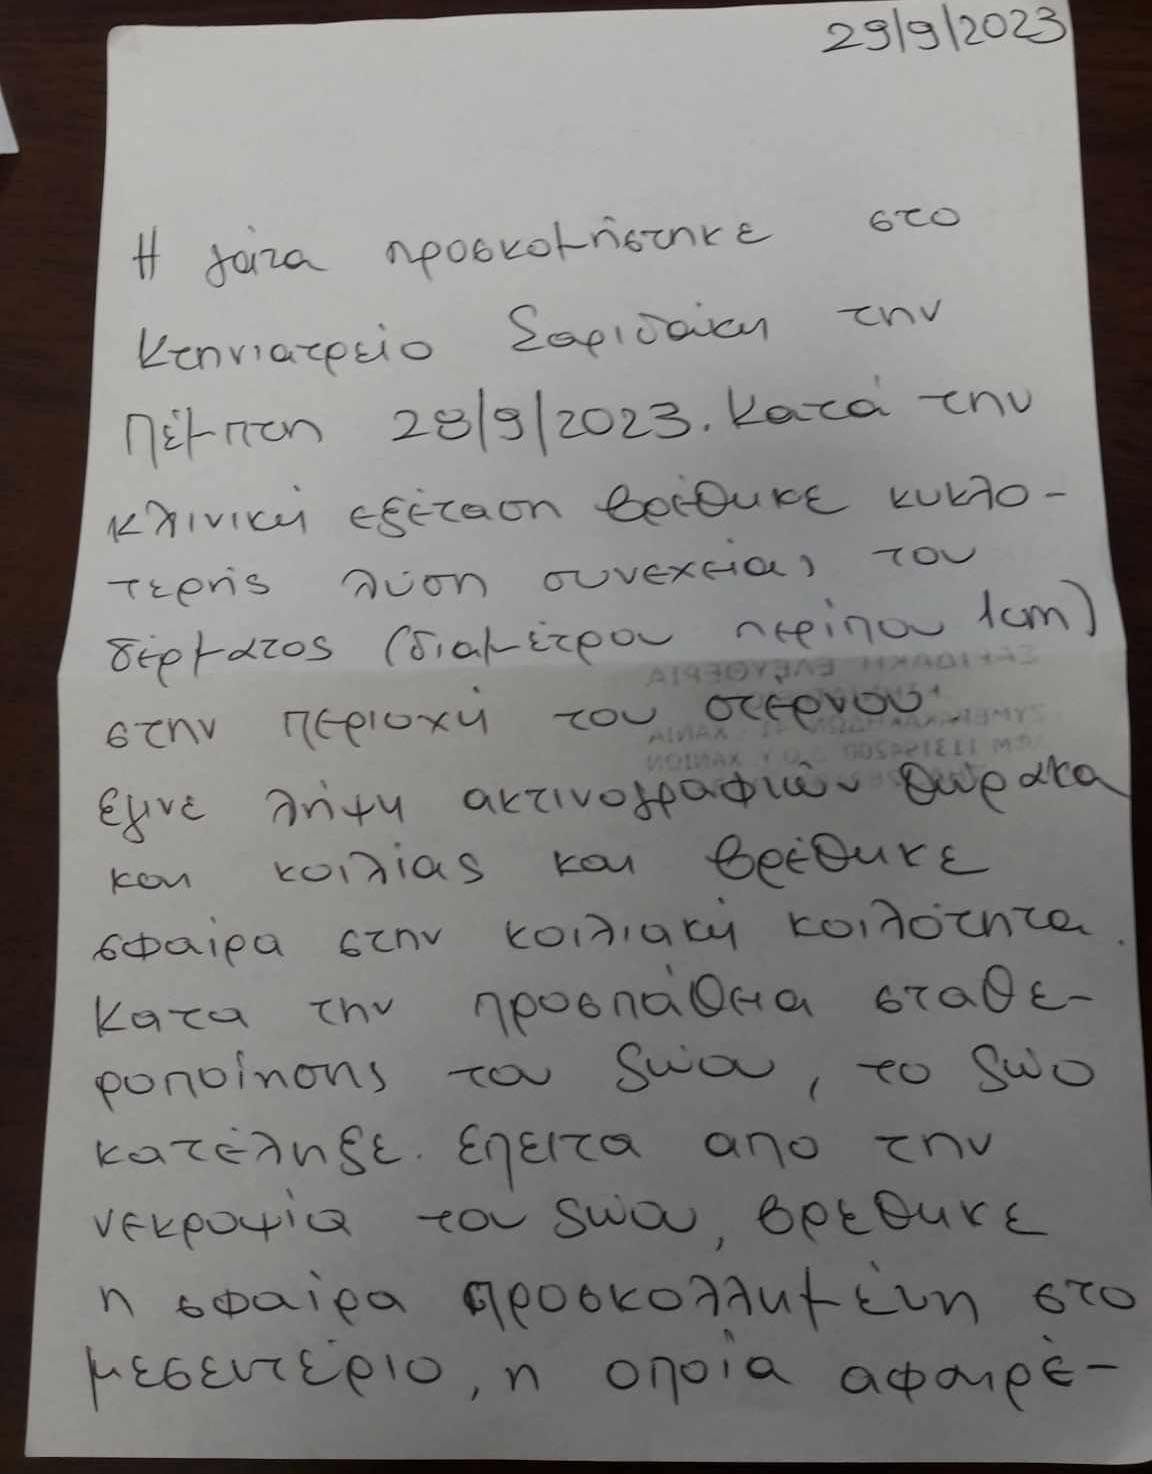 29/9/2023
Η γάτα προσκομήστηκε στο
Κτηνιατρείο Σαριδάκη την
Πέμπτη 28/9/2023. Κατά την
κλινική εξέταση βρέθηκε κυκλο-
τερής λύση συνεχείας του
δέρματος (διαμέτρου περίπου 1cm)
στην περιοχή του στέρνου.
ΕΛΕΥΘΕΡΙΑ
ΧΑΝΙΑ
ΧΑΝΙΩΝ
έγινε λήψη ακτινογραφιών θώρακα
και κοιλίας και βρέθηκε
σφαίρα στην κοιλιακή κοιλότητα.
Κατα την προσπάθεια σταθε-
ροποίησης του ζώου, το ζώο
κατέληξε. Επειτα απο την
νεκροψία του ζώου, βρέθηκε
η σφαίρα προσκολλημένη στο
μεσεντέριο, η οποία αφαιρέ-